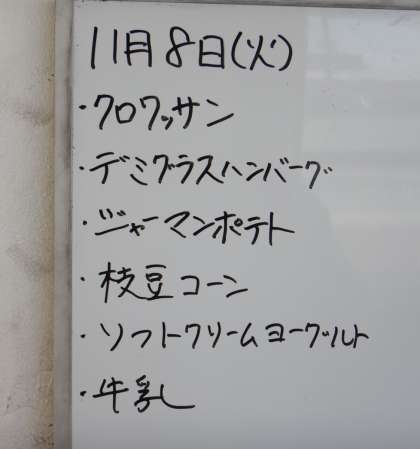 11月8日(火)
・クロワッサン
・デミグラスハンバーグ
・ジャーマンポテト
・枝豆コーン
・ソフトクリームヨーグルト
・牛乳